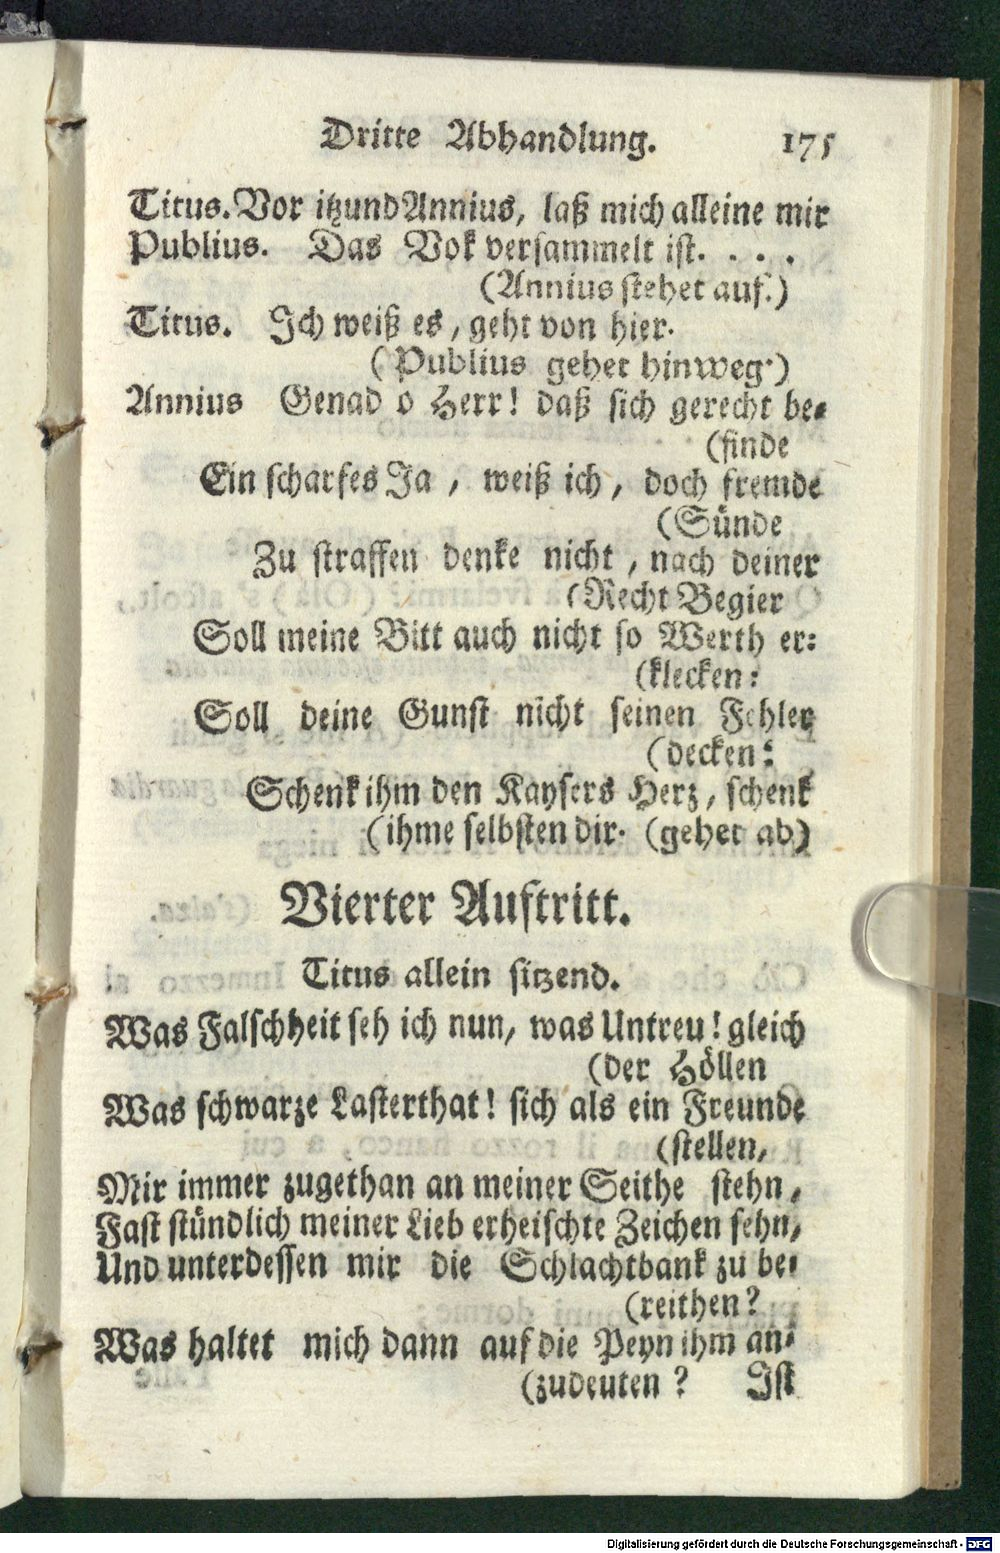 Dritte Abhandlung. 175
Titus. Vor itzund Annius, laß mich alleine mir
Publius. Das Vok versammelt ist. . . .
(Annius stehet auf.)
Titus. Ich weiß es, geht von hier.
(Publius gehet hinweg.)
Annius Genad o Herr! daß sich gerecht be-
(finde
Ein scharfes Ja, weiß ich, doch fremde
(Sünde
Zu straffen denke nicht, nach deiner
(Recht Begier
Soll meine Bitt auch nicht so Werth er:
(klecken:
Soll deine Gunst nicht seinen Fehler
(decken:
Schenk ihm den Kaysers Herz, schenk
(ihme selbsten dir. (gehet ab)
Vierter Auftritt.
Titus allein sitzend.
Was Falschheit seh ich nun, was Untreu! gleich
(der Höllen
Was schwarze Lasterthat! sich als ein Freunde
(stellen,
Mir immer zugethan an meiner Seithe stehn,
Fast stündlich meiner Lieb erheischte Zeichen sehn,
Und unterdessen mir die Schlachtbank zu be-
(reithen?
Was haltet mich dann auf die Peyn ihm an-
(zudeuten? Ist
Digitalisierung gefördert durch die Deutsche Forschungsgemeinschaft - DFG